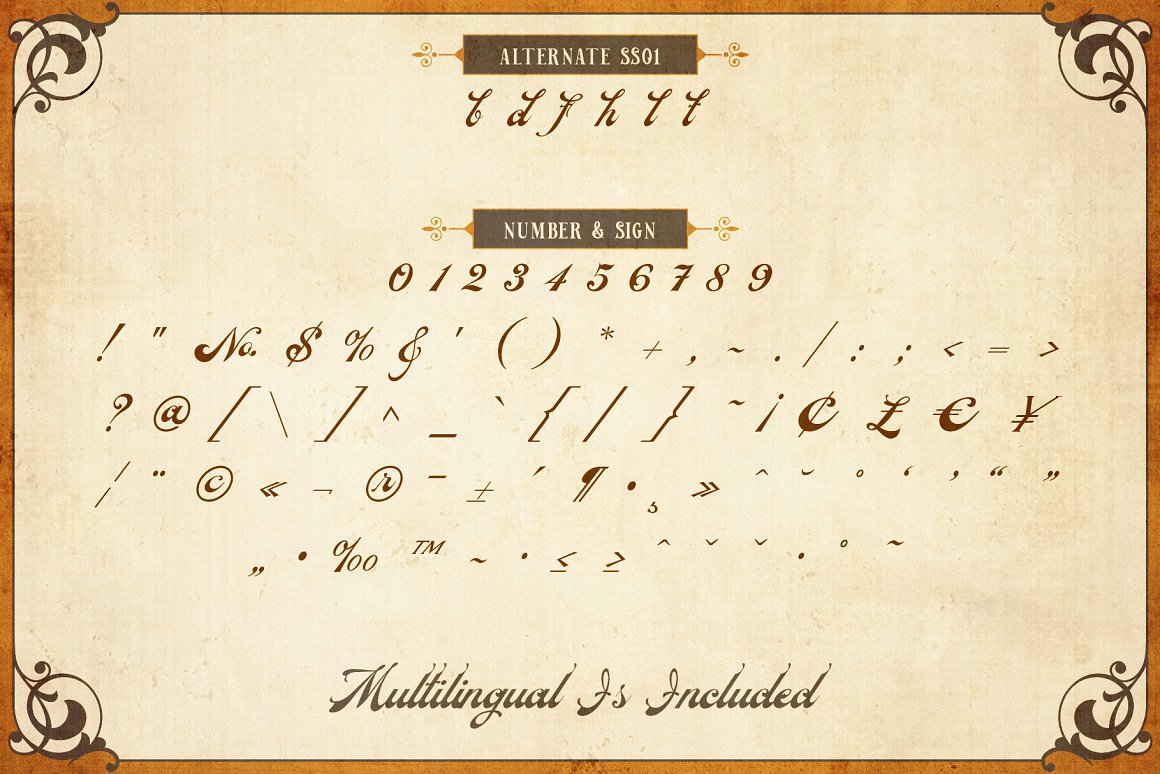 ALTERNATE SS01
b d f h l t
NUMBER & SIGN
0 1 2 3 4 5 6 7 8 9
! " No. $ % & ' ( ) * + , ~ . / : ; < = >
? @ [ \ ] ^ _ ` { / } ~ ¡ ¢ £ € ¥
¦ ¨ © « ¬ ® ¯ ± ´ ¶ • ¸ » ˆ ˘ ° ‘ ’ “ ”
„ • ‰ ™ ~ · ≤ ≥ ˆ ˇ ˘ . ° ~
Multilingual Is Included